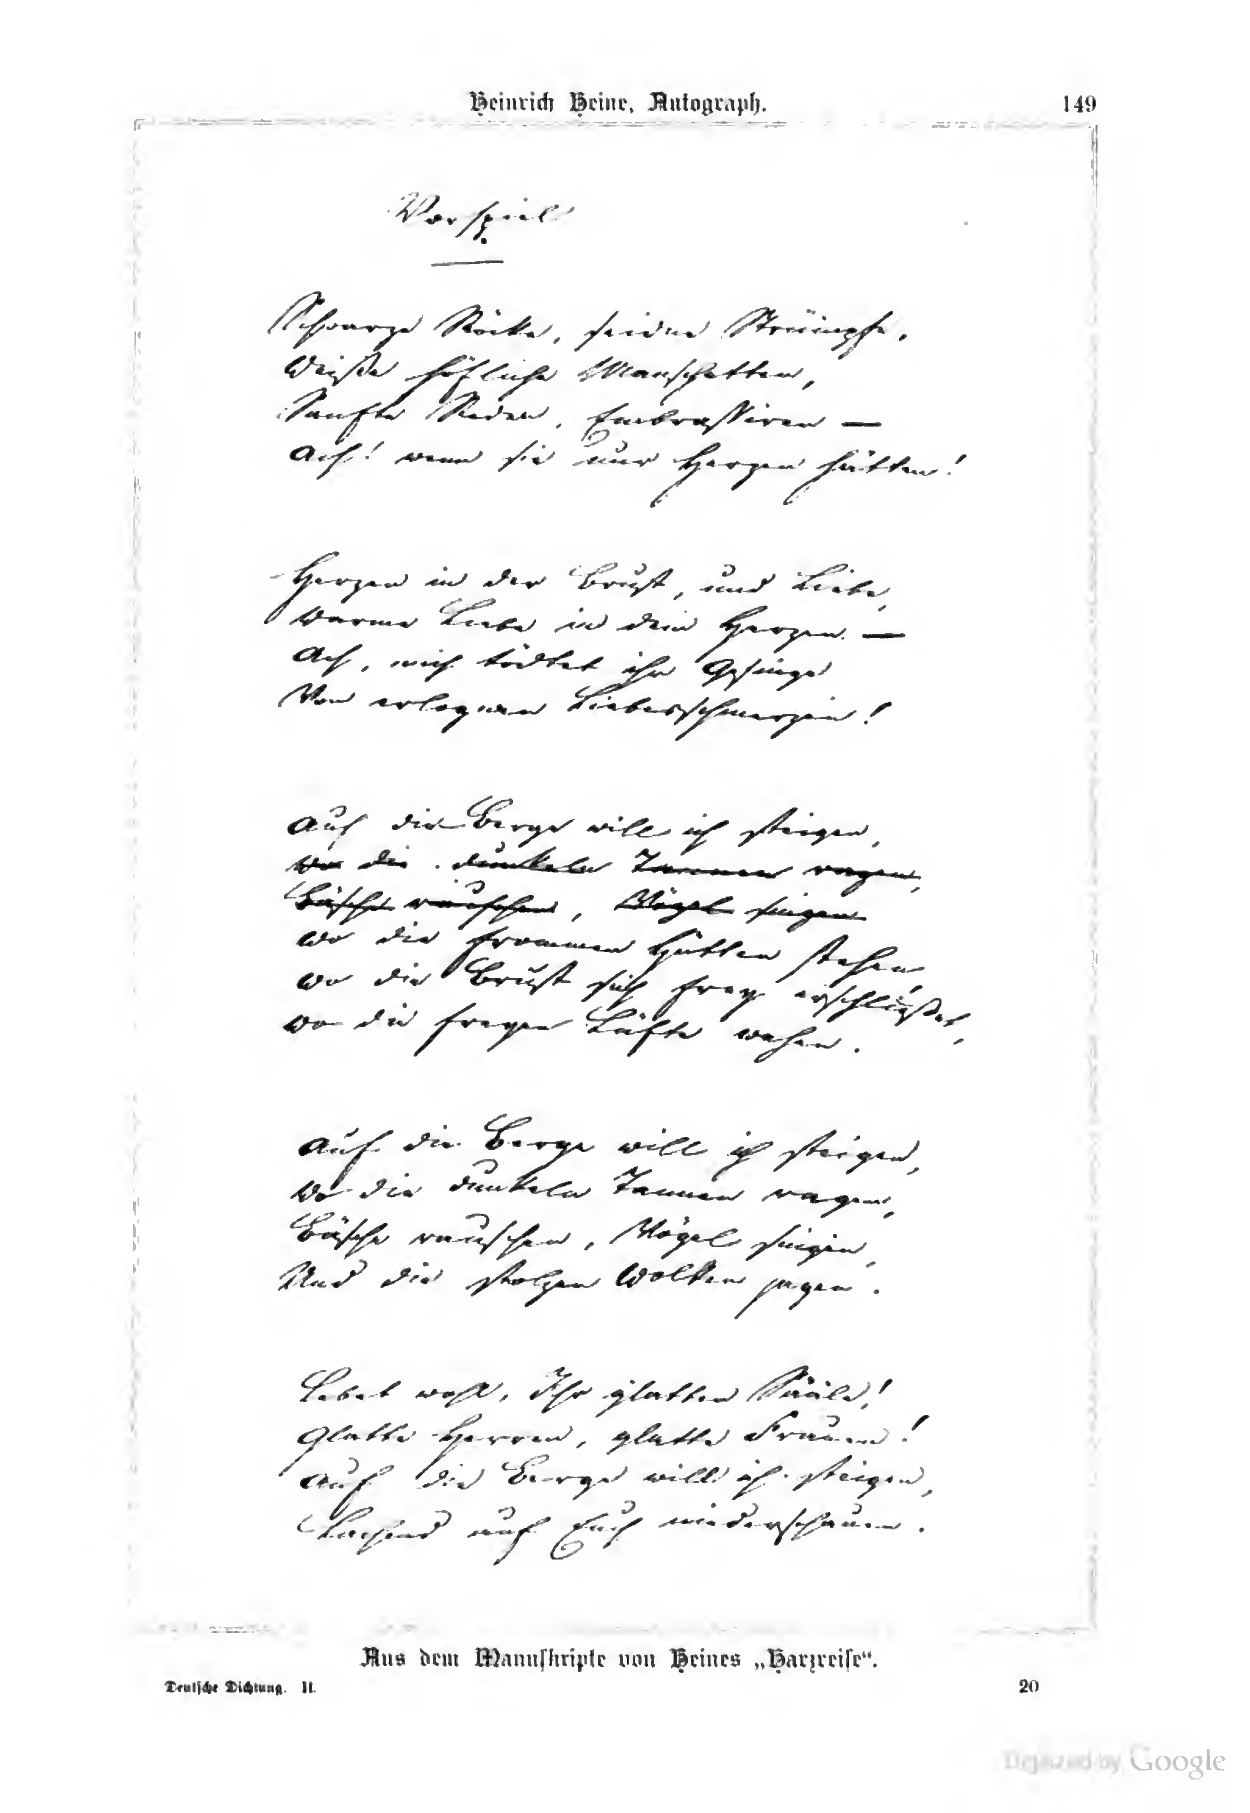 Heinrich Heine, Autograph.
149
Vorspiel
Schwarze Röcke, seidne Strümpfe,
Weiße höfliche Manschetten,
Sanfte Reden, Embrassiren —
Ach! wenn sie nur Herzen hätten!
Herzen in der Brust, und Liebe,
Warme Liebe in dem Herzen —
Ach, mich tödtet ihr Gesinge
Von erlognen Liebesschmerzen!
Auf die Berge will ich steigen,
Wo die dunkeln Tannen ragen,
Bäche rauschen, Vögel singen
Wo die frommen Hütten stehen
Wo die Brust sich frey erschließet,
Wo die freyen Lüfte wehen.
Auf die Berge will ich steigen,
Wo die dunkeln Tannen ragen,
Bäche rauschen, Vögel singen,
Und die stolzen Wolken jagen.
Lebet wohl, Ihr glatten Sääle!
Glatte Herren, glatte Frauen!
Auf die Berge will ich steigen,
Lachend auf Euch niederschauen.
Aus dem Manuskripte von Heines „Harzreise“.
Deutsche Dichtung. II.
20
Digitized by Google